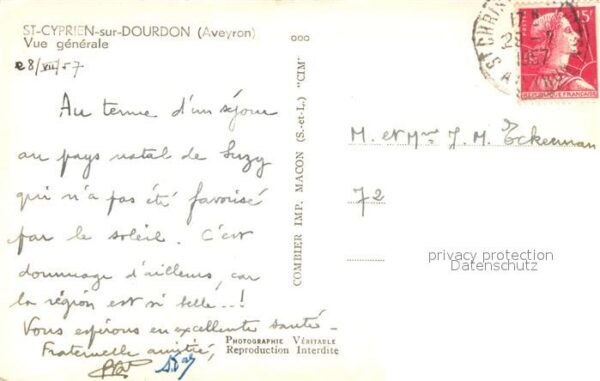 ST-CYPRIEN-sur-DOURDON (Aveyron)
Vue générale
28/VII/57
Au terme d'un séjour
au pays natal de Suzy
qui n'a pas été favorisé
par le soleil. C'est
dommage d'ailleurs, car
la région est si belle..!
Vous espérons en excellente santé-
Fraternelle amitié,
COMBIER IMP. MACON (S.-et-L.) "CIM"
PHOTOGRAPHIE VÉRITABLE
Reproduction Interdite
1957
15F
M. et Mme J. M. Eckerman
72
privacy protection
Datenschutz